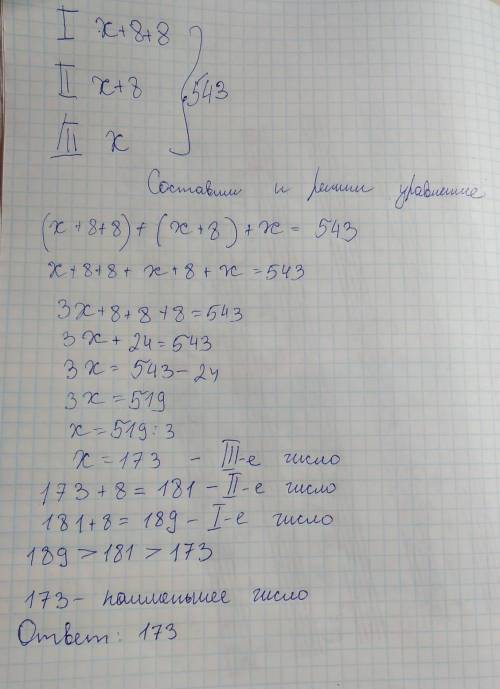 I x+8+8
II x+8 } 543
III x
Составим и решим уравнение
(x+8+8)+(x+8)+x= 543
x+8+8+x+8+x=543
3x+8+8+8=543
3x+24=543
3x=543-24
3x=519
x=519:3
x=173 - III-е число
173+8=181-II-е число
181+8=189-I-е число
189>181>173
173- наименьшее число
Ответ: 173